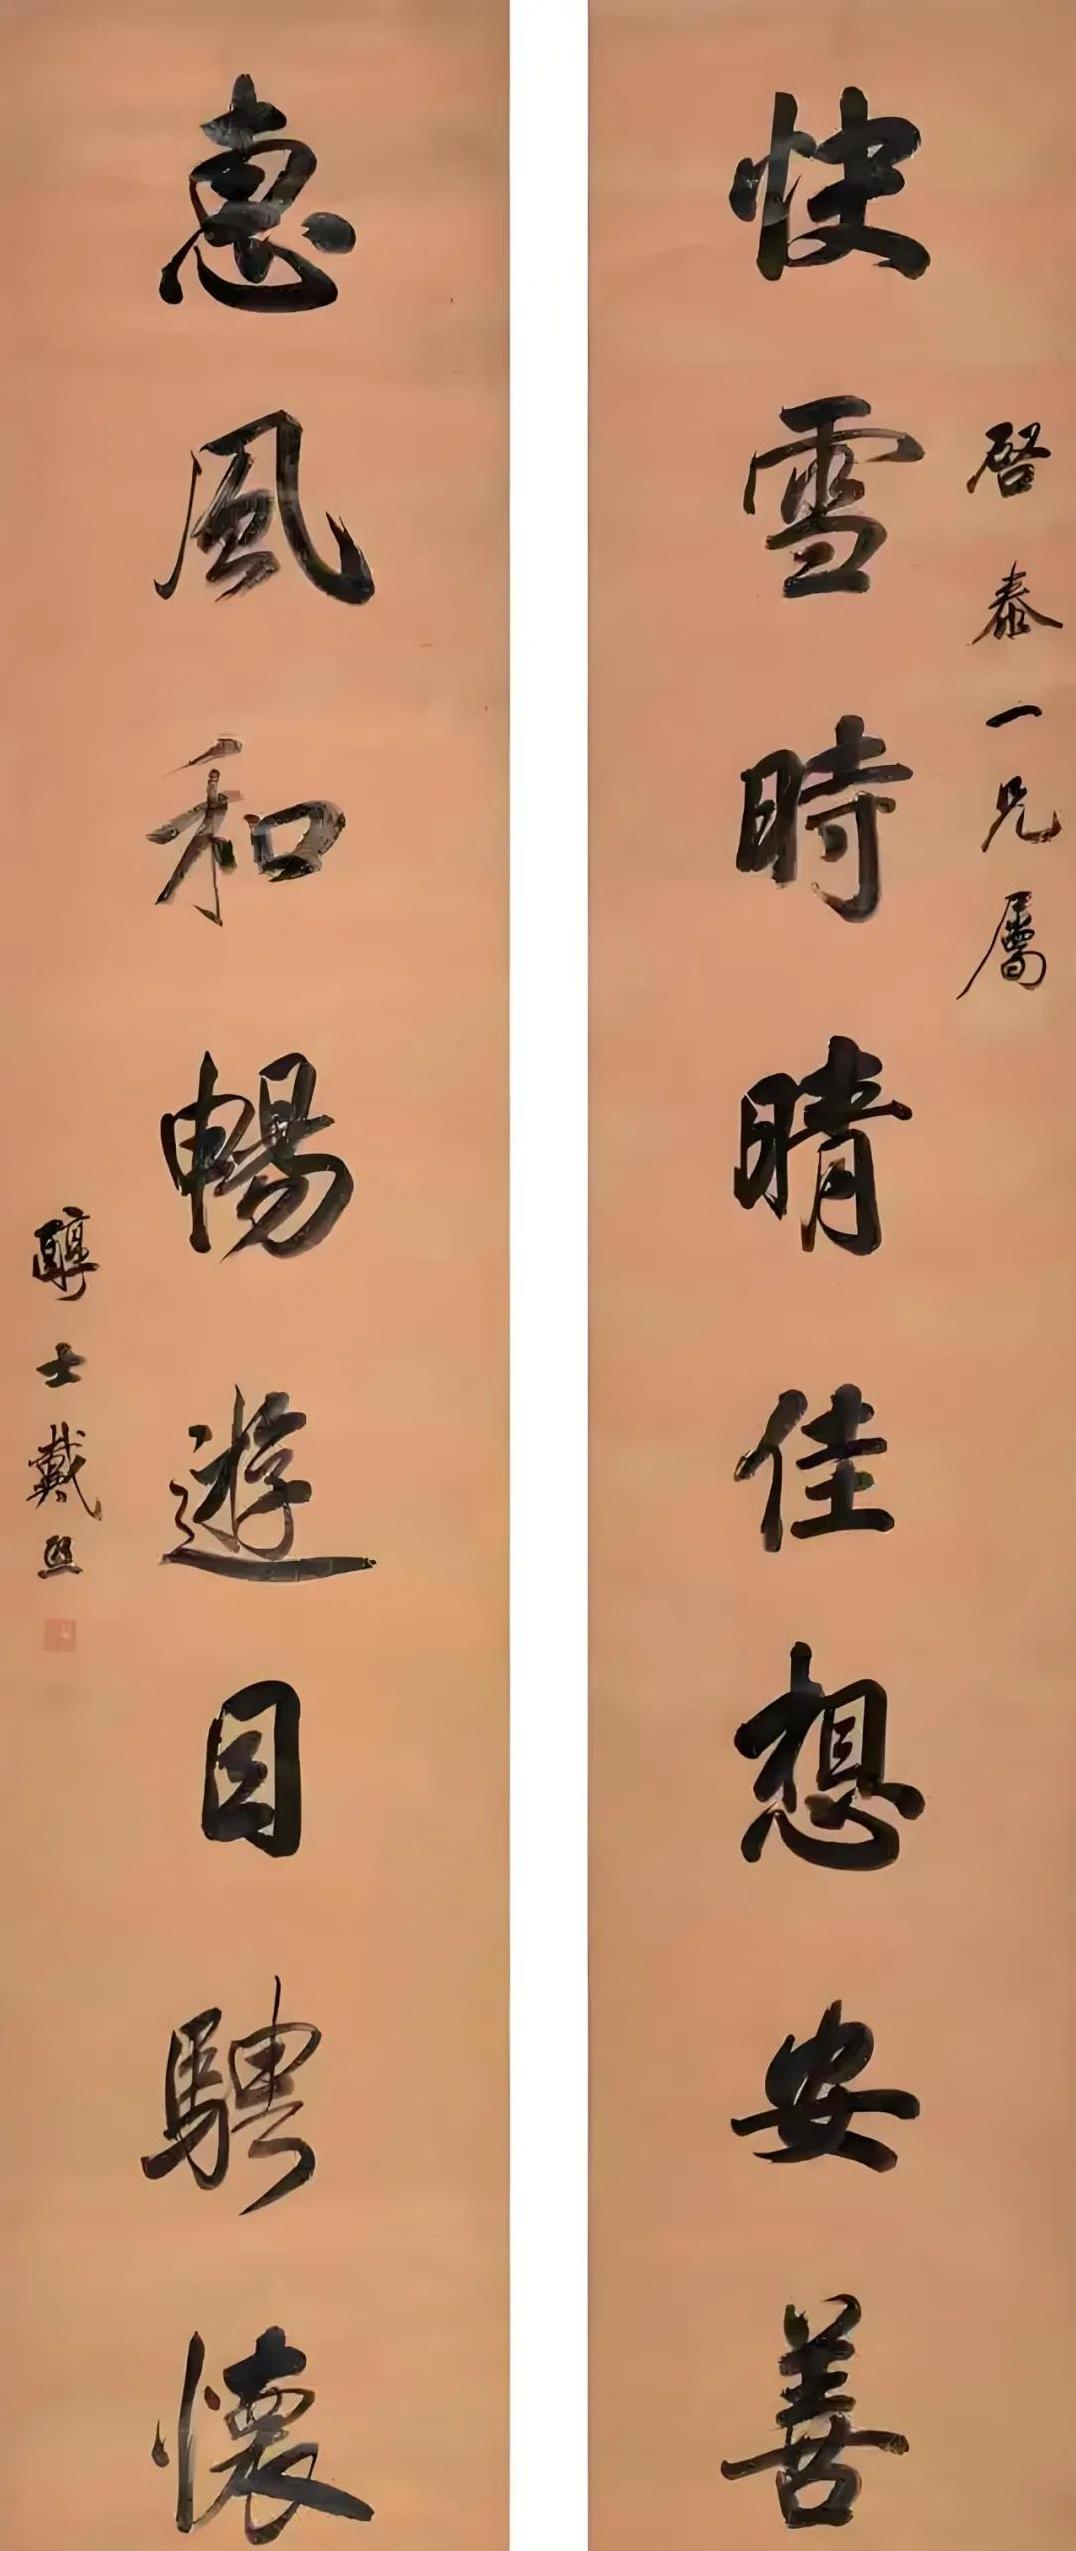 啓泰一兄屬
快雪時晴佳想安善
惠風和暢遊目騁懷
醇士戴熙